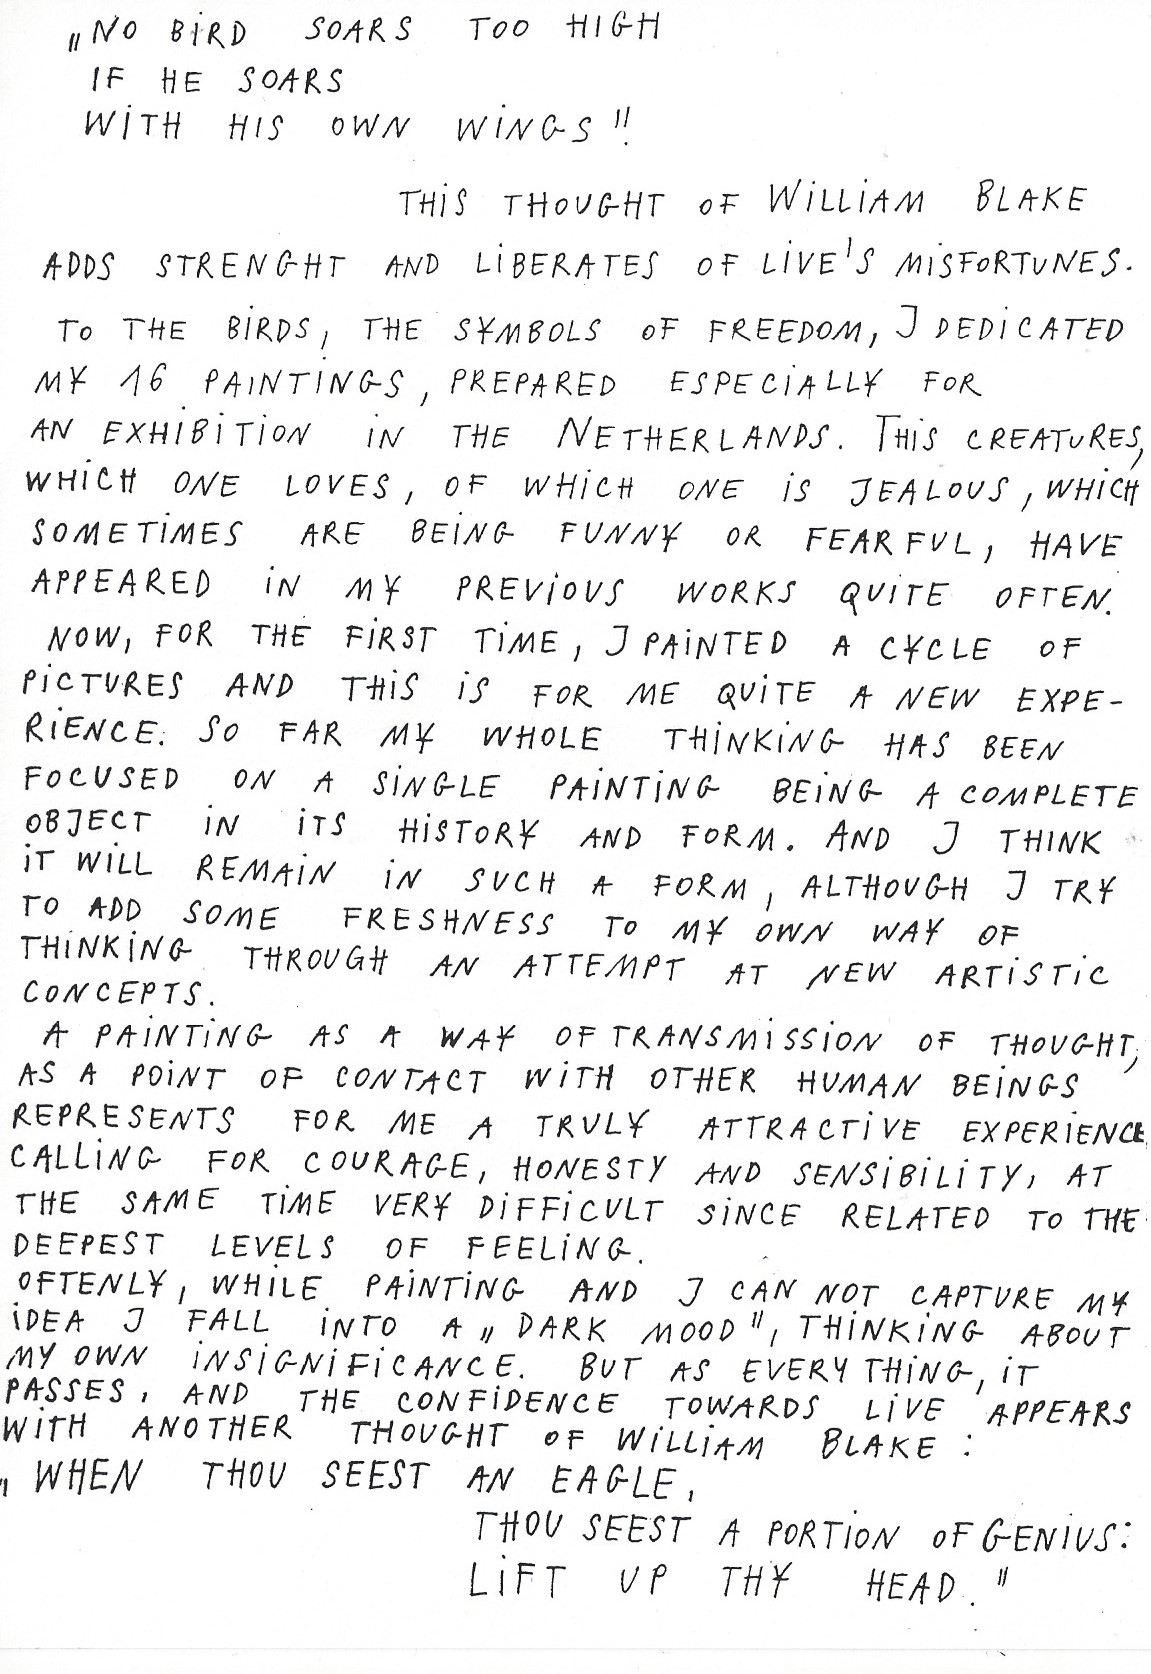 „NO BIRD SOARS TOO HIGH
IF HE SOARS
WITH HIS OWN WINGS"
THIS THOUGHT OF WILLIAM BLAKE
ADDS STRENGHT AND LIBERATES OF LIVE'S MISFORTUNES.
TO THE BIRDS, THE SYMBOLS OF FREEDOM, I DEDICATED
MY 16 PAINTINGS, PREPARED ESPECIALLY FOR
AN EXHIBITION IN THE NETHERLANDS. THIS CREATURES,
WHICH ONE LOVES, OF WHICH ONE IS JEALOUS, WHICH
SOMETIMES ARE BEING FUNNY OR FEARFUL, HAVE
APPEARED IN MY PREVIOUS WORKS QUITE OFTEN.
NOW, FOR THE FIRST TIME, I PAINTED A CYCLE OF
PICTURES AND THIS IS FOR ME QUITE A NEW EXPE-
RIENCE. SO FAR MY WHOLE THINKING HAS BEEN
FOCUSED ON A SINGLE PAINTING BEING A COMPLETE
OBJECT IN ITS HISTORY AND FORM. AND I THINK
IT WILL REMAIN IN SUCH A FORM, ALTHOUGH I TRY
TO ADD SOME FRESHNESS TO MY OWN WAY OF
THINKING THROUGH AN ATTEMPT AT NEW ARTISTIC
CONCEPTS.
A PAINTING AS A WAY OF TRANSMISSION OF THOUGHT,
AS A POINT OF CONTACT WITH OTHER HUMAN BEINGS
REPRESENTS FOR ME A TRULY ATTRACTIVE EXPERIENCE
CALLING FOR COURAGE, HONESTY AND SENSIBILITY, AT
THE SAME TIME VERY DIFFICULT SINCE RELATED TO THE
DEEPEST LEVELS OF FEELING.
OFTENLY, WHILE PAINTING AND I CAN NOT CAPTURE MY
IDEA I FALL INTO A „DARK MOOD", THINKING ABOUT
MY OWN INSIGNIFICANCE. BUT AS EVERYTHING, IT
PASSES, AND THE CONFIDENCE TOWARDS LIVE APPEARS
WITH ANOTHER THOUGHT OF WILLIAM BLAKE:
„WHEN THOU SEEST AN EAGLE,
THOU SEEST A PORTION OF GENIUS:
LIFT UP THY HEAD."